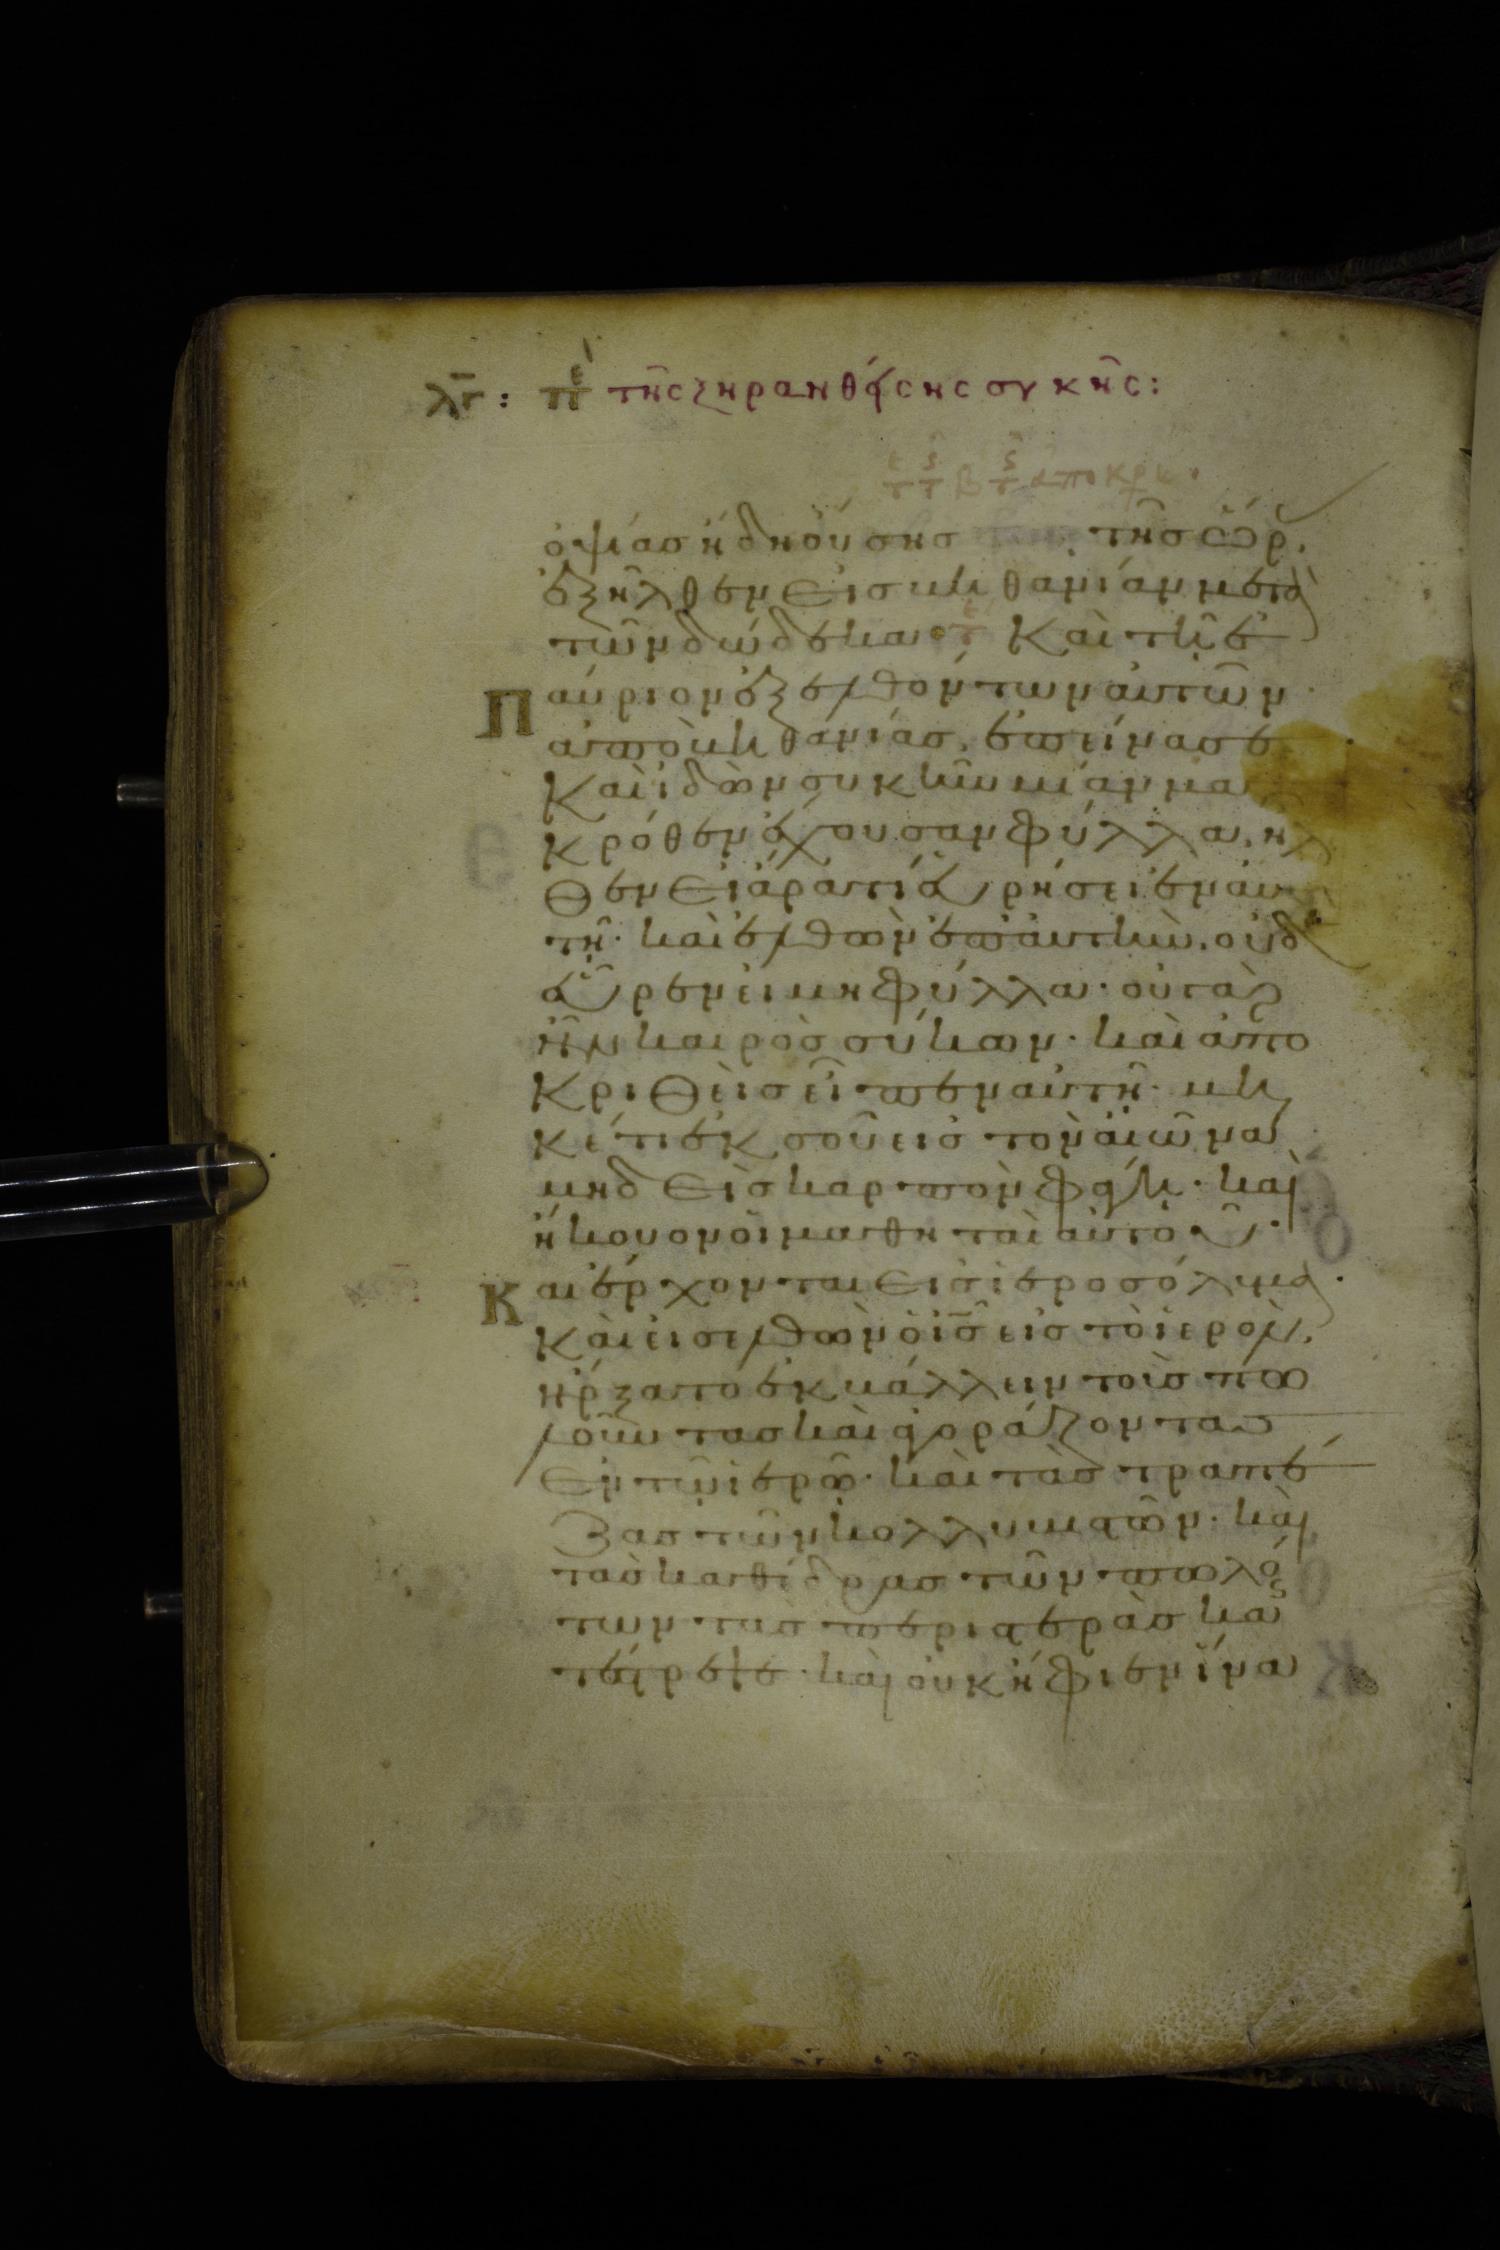 λγ̅: πε τῆς ξηρανθείσης συκῆς:
ὀψίασ ἤδη οὔσησ τῆσ ὥρ.
ἐξῆλθεν εἰσ βηθανίαν μετὰ
τῶν δώδεκα· Καὶ τῆ ἐ
Π αύριον ἐξελθόντων αὐτῶν
ἀπὸ βηθανίασ, ἐπείνασε
Καὶ ἰδὼν συκῆν μίαν μα
κρόθεν ἔχουσαν φύλλα, ηλ
θεν εἰ ἄρα τί εὑρήσει ἐν αὐ
τῆ· καὶ ἐλθὼν ἐπ αὐτὴν, οὐδὲ
εὗρεν εἰ μὴ φύλλα· οὐ γὰρ
ἦν καιρὸσ σύκων· καὶ ἀπο
κριθεὶσ εἶπεν αὐτῆ· μη
κέτι ἐκ σοῦ εἰσ τὸν αἰῶνα
μηδεὶσ καρπὸν φάγη· καὶ
ἤκουον οἱ μαθηταὶ αὐτοῦ·
Κ αι ἔρχονται εἰσ ἱεροσόλυμα·
Καὶ εἰσελθὼν ὁ ι̅σ̅ εἰσ τὸ ἱερὸν,
ἤρξατο ἐκβάλλειν τοὺσ πω
λοῦντασ καὶ ἀγοράζοντασ
ἐν τῶ ἱερῶ· καὶ τὰσ τραπέ
ζασ τῶν κολλυβιστῶν· καὶ
τὰσ καθέδρασ τῶν πωλού
των τὰσ περιστερὰσ κα
τέστρεψε· καὶ οὐκ ἤφιεν ἵνα